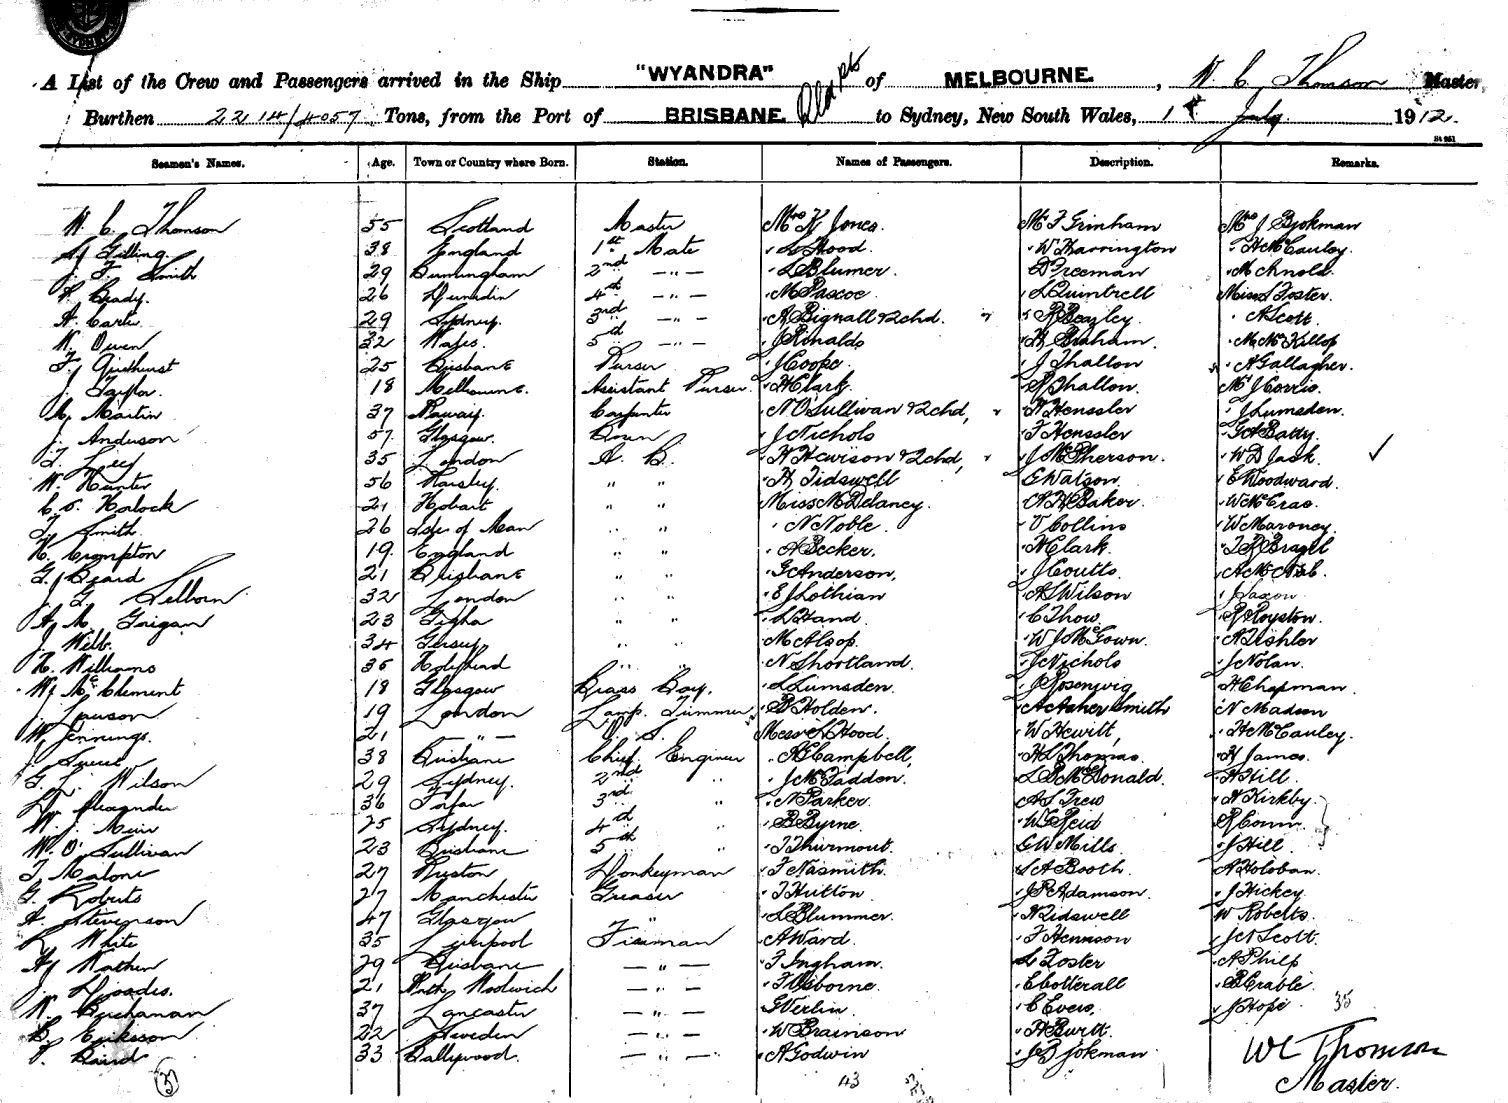 A List of the Crew and Passengers arrived in the Ship "WYANDRA" of MELBOURNE, W. C. Thomson Master
Burthen 2214/4057 Tons, from the Port of BRISBANE to Sydney, New South Wales, 1st July 1912.
Seamen's Names. Age. Town or Country where Born. Station. Names of Passengers. Description. Remarks.
W. C. Thomson 55 Scotland Master Mrs K Jones. Mr F Grinham Mrs J Bjokman
Gilling 38 England 1st Mate " L Hood. " W Harrington " H McCauley.
J. F. Smith 29 Birmingham 2nd — " — " L Blumer. " D Freeman " M Arnold.
Brady. 26 Dunedin 4th — " — " M Pascoe " L Quintrell Miss L Foster.
29 Sydney. 3rd — " — " A Bignall & 2 chd. " R Beazley " A Scott.
Owen 32 Wales. 5th — " — " J Ronalds " Graham. " M McKillop
25 Brisbane Purser " J Coope. " J Thallon " A Gallagher.
J. Taylor. 18 Melbourne. Assistant Purser. " H Clark. " R Thallon. Mr J Corrie.
Martin 37 Carpenter " N O'Sullivan & 2 chd, " H Henssler " J Lumsden.
J. Anderson 57. Glasgow. " J Nichols " F Henssler " G A Batty.
35 London A. B. " H Hewison & 2 chd, " J McPherson. " W D Jack.
W. Hunter 56 Paisley. " " " A Tidswell " G Watson. " E Woodward.
21 Hobart " " Miss M Delaney. " H Baker. " W McCrae.
T. Smith. 26 Isle of Man " " " N Noble. " V Collins " W Maroney.
Crompton 19. England " " " A Becker. " N Clark. " Brazel
G. Beard 21 Brisbane " " " G Anderson. " J Coutts. " A McNab.
32 London " " " E J Lothian " A S Wilson " J Saxon
23 " " " L Hand " C Thow. " R Royston.
34 Jersey " " " M Alsop. " W J McGown. " A Tishler
Williams 35 Holyhead " " " N Shortland. " J Nichols " J Nolan.
McClement 18 Glasgow Brass Boy. " L Lumsden. " J Rosenzwig " H Chapman.
J. Lawson 19 London Lamp Trimmer " B Holden. " A Asher Smith " N Madsen
W. Jennings. 21 — " — O. S. Hood. " W Hewitt, " H McCauley.
38 Brisbane Chief Engineer " A Campbell, " H L Thomas. " H James.
Wilson 29 Sydney. 2nd " " J McFadden. " McDonald. " H Hill.
Alexander 36 Forfar 3rd " " N Parker. " A S Trew " N Kirkby
W. J. Muir 25 Sydney. 4th " " B Byrne. " W G Reid " R Conn
W. O'Sullivan 23 Brisbane 5th " " J Thurmont. " G W Mills. " J Hill.
T. Malone 27 Donkeyman " F Nasmith. " S A Booth. " A Holoban.
G. Roberts 27 Manchester Greaser " J Hutton " J R Adamson. " J Hickey
A. Stevenson 47 Glasgow " " L Blummer. " N Tidswell " W Roberts.
White 35 Liverpool Fireman " A Ward. " F Hennson " J N Scott.
Mathew 29 Brisbane — " — " F Ingham. " L Foster " A Philp
J. 21 North Woolwich — " — " F Osborne. " C Cotterall " B Crable.
Buchanan 37 Lancaster — " — " G Verlin " C Evers, " J Hope 35
Erikson 22 Sweden — " — " W Brainson " H Burtt.
Baird 33 Ballywood. — " — " A Godwin " J B Jokman
37 43
W C Thomson
Master.